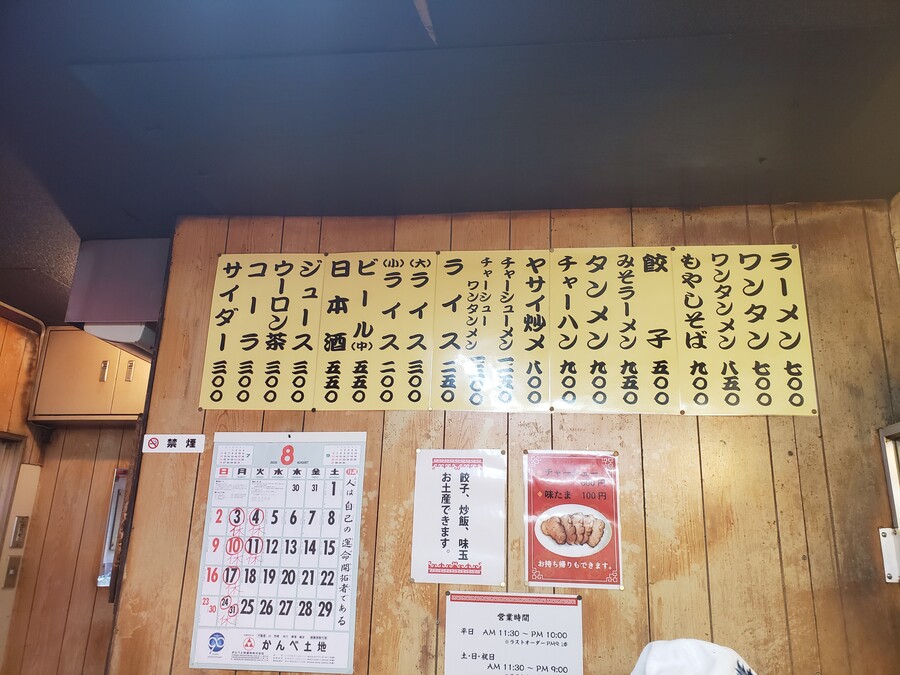 ラーメン 七〇〇
ワンタン 七〇〇
ワンタンメン 八五〇
もやしそば 九〇〇
餃子 五〇〇
みそラーメン 九五〇
タンメン 九〇〇
チャーハン 九〇〇
ヤサイ炒メ 八〇〇
チャーシューメン 一二五〇
チャーシューワンタンメン
ライス 二五〇
(大)ライス 三〇〇
(小)ライス 二〇〇
ビール(中) 五五〇
日本酒 五五〇
ジュース 三〇〇
ウーロン茶 三〇〇
コーラ 三〇〇
サイダー 三〇〇
禁煙
7
8
9
日 月 火 水 木 金 土
30 31 1
2 3 4 5 6 7 8
休 休
9 10 11 12 13 14 15
休 休
16 17 18 19 20 21 22
休
23 30 24 31 25 26 27 28 29
休
人は自己の運命開拓者である
90
かんべ土地
餃子、炒飯、味玉
お土産できます。
味たま 100円
お持ち帰りもできます。
営業時間
平日 AM 11:30 ～ PM 10:00
※ラストオーダー
土・日・祝日
AM 11:30 ～ PM 9:00